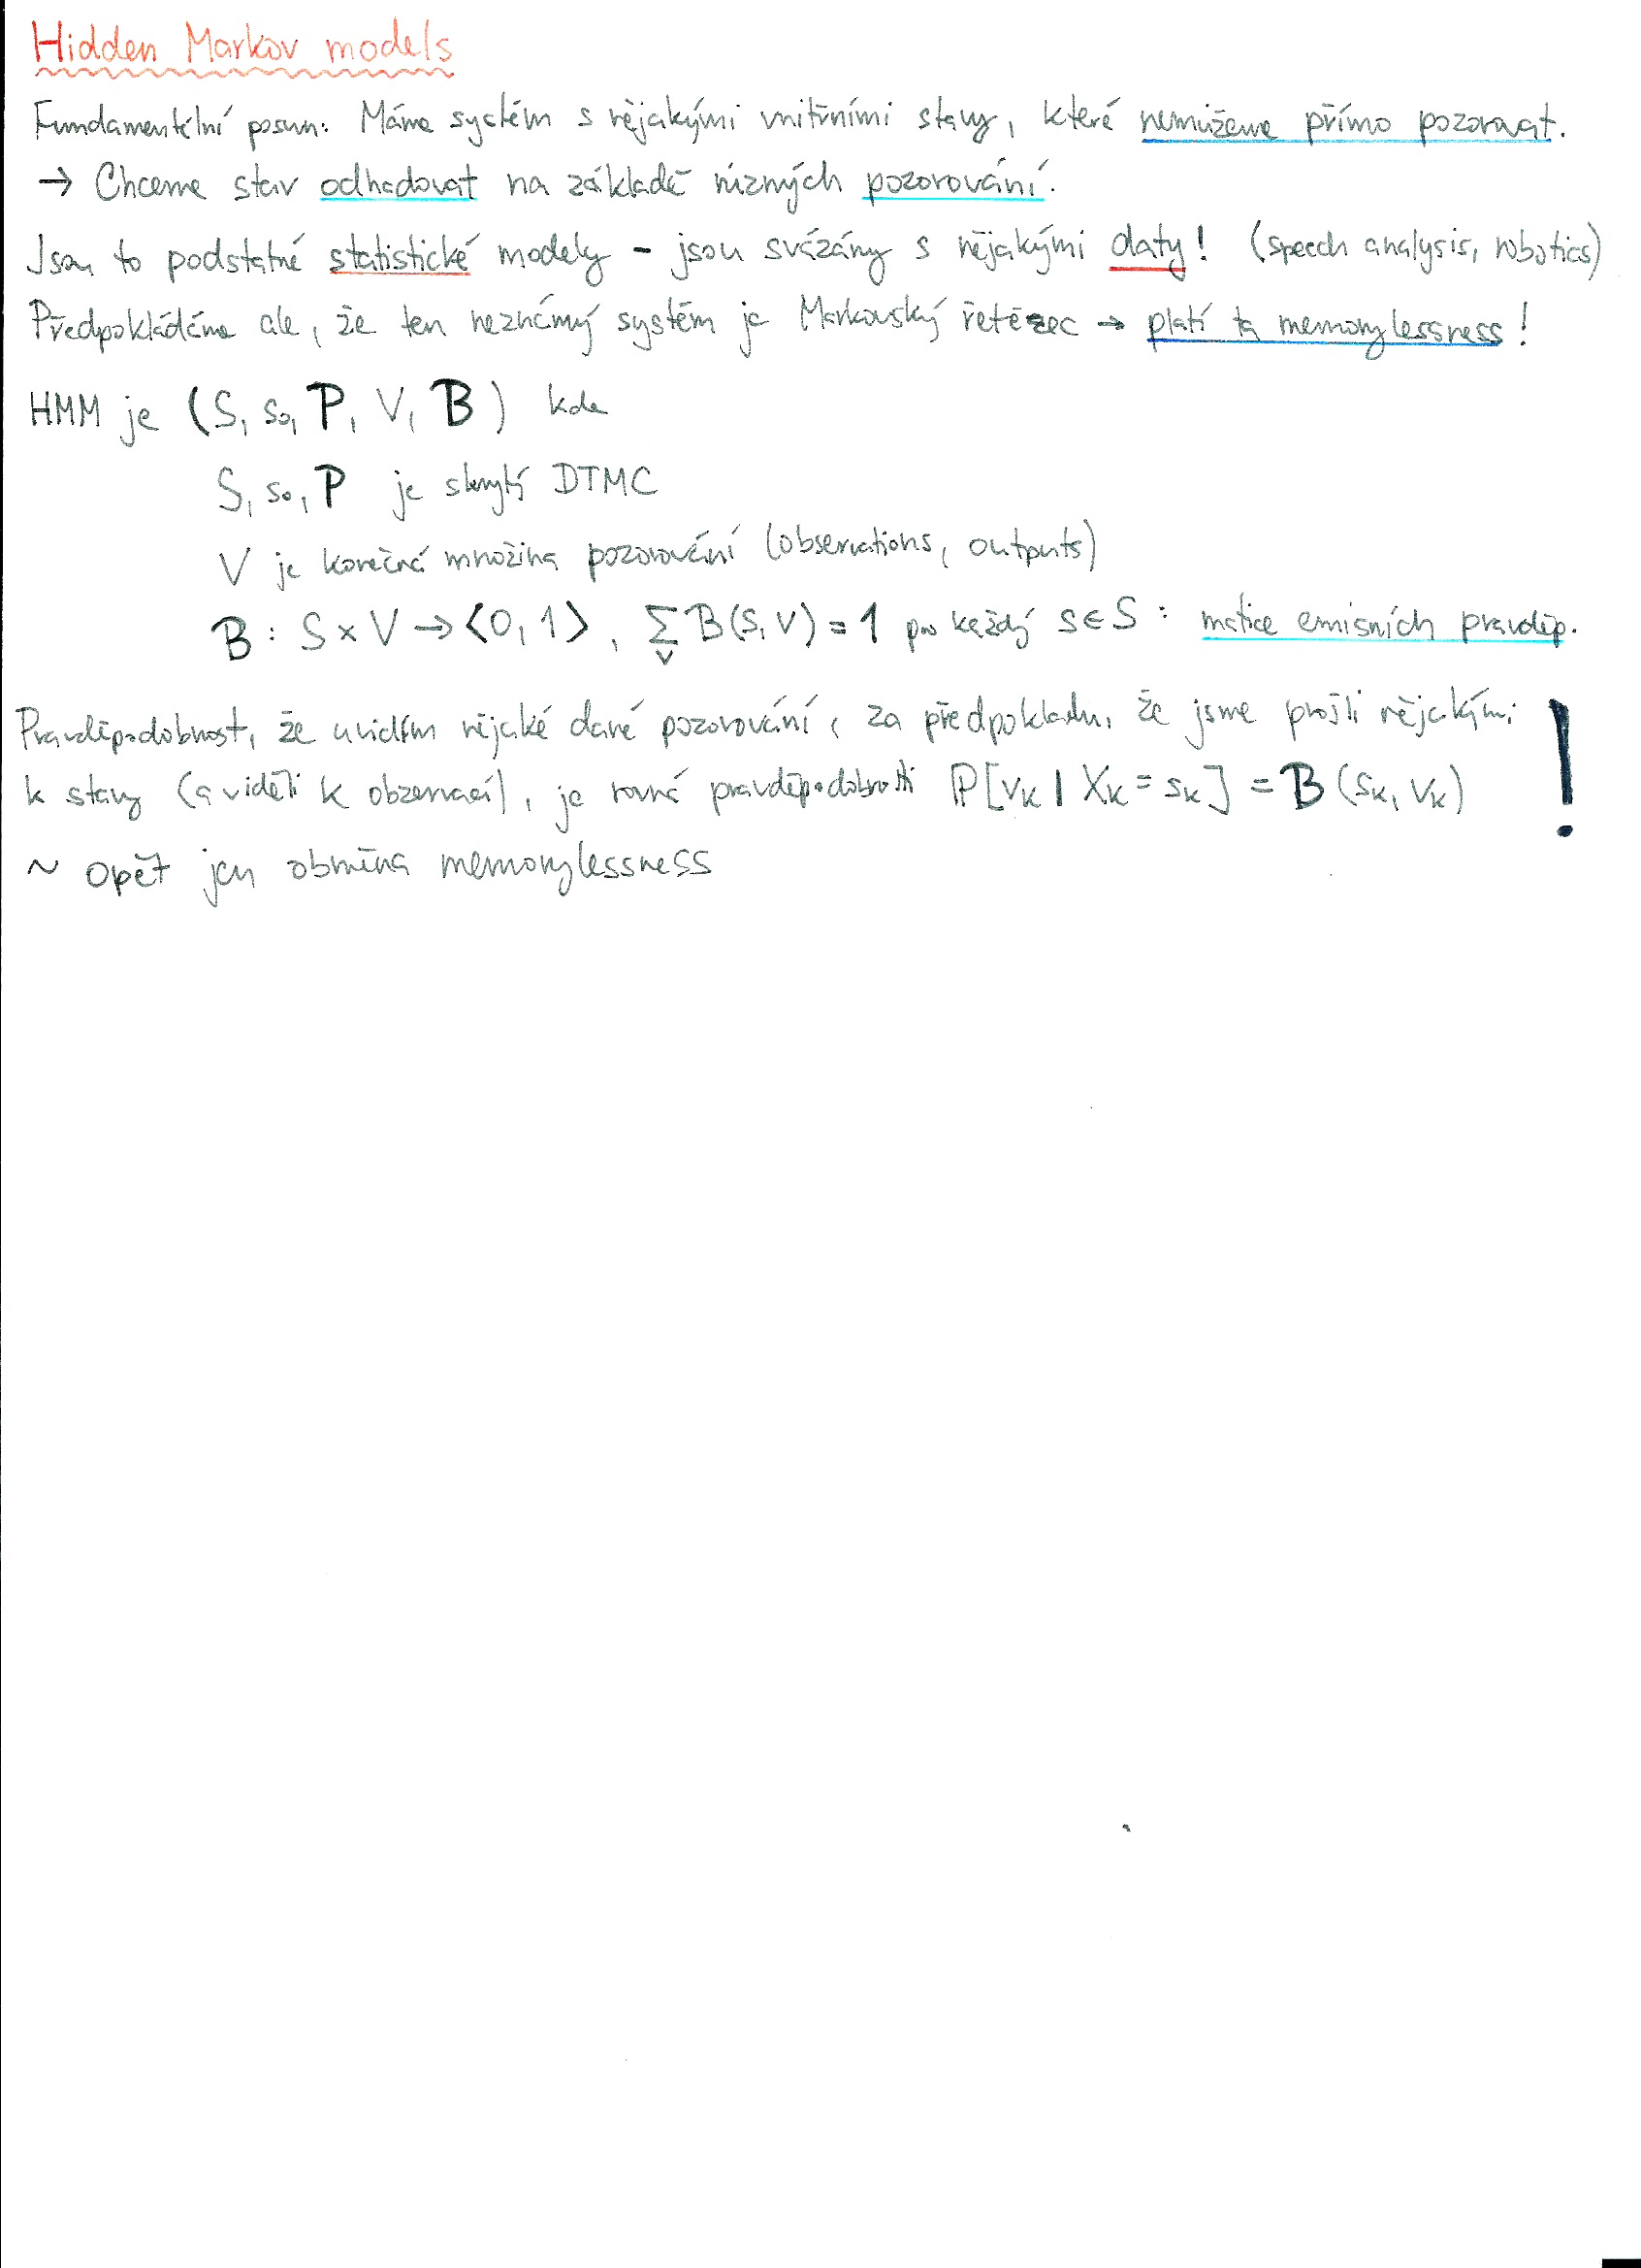 Hidden Markov models
Fundamentální posun: Máme systém s nějakými vnitřními stavy, které nemůžeme přímo pozorovat.
→ Chceme stav odhadovat na základě různých pozorování.
Jsou to podstatně statistické modely - jsou svázány s nějakými daty! (speech analysis, robotics)
Předpokládáme ale, že ten neznámý systém je Markovský řetězec → platí ta memorylessness!
HMM je (S, s₀, P, V, B) kde
S, s₀, P je skrytý DTMC
V je konečná množina pozorování (observations, outputs)
B : S × V → <0, 1>, ∑ᵥ B(s, v) = 1 pro každý s ∈ S : matice emisních pravděp.
Pravděpodobnost, že uvidím nějaké dané pozorování, za předpokladu, že jsme prošli nějakými !
k stavy (a viděli k observací), je rovna pravděpodobnosti ℙ[vₖ | Xₖ = sₖ] = B(sₖ, vₖ)
~ opět jen obměna memorylessness